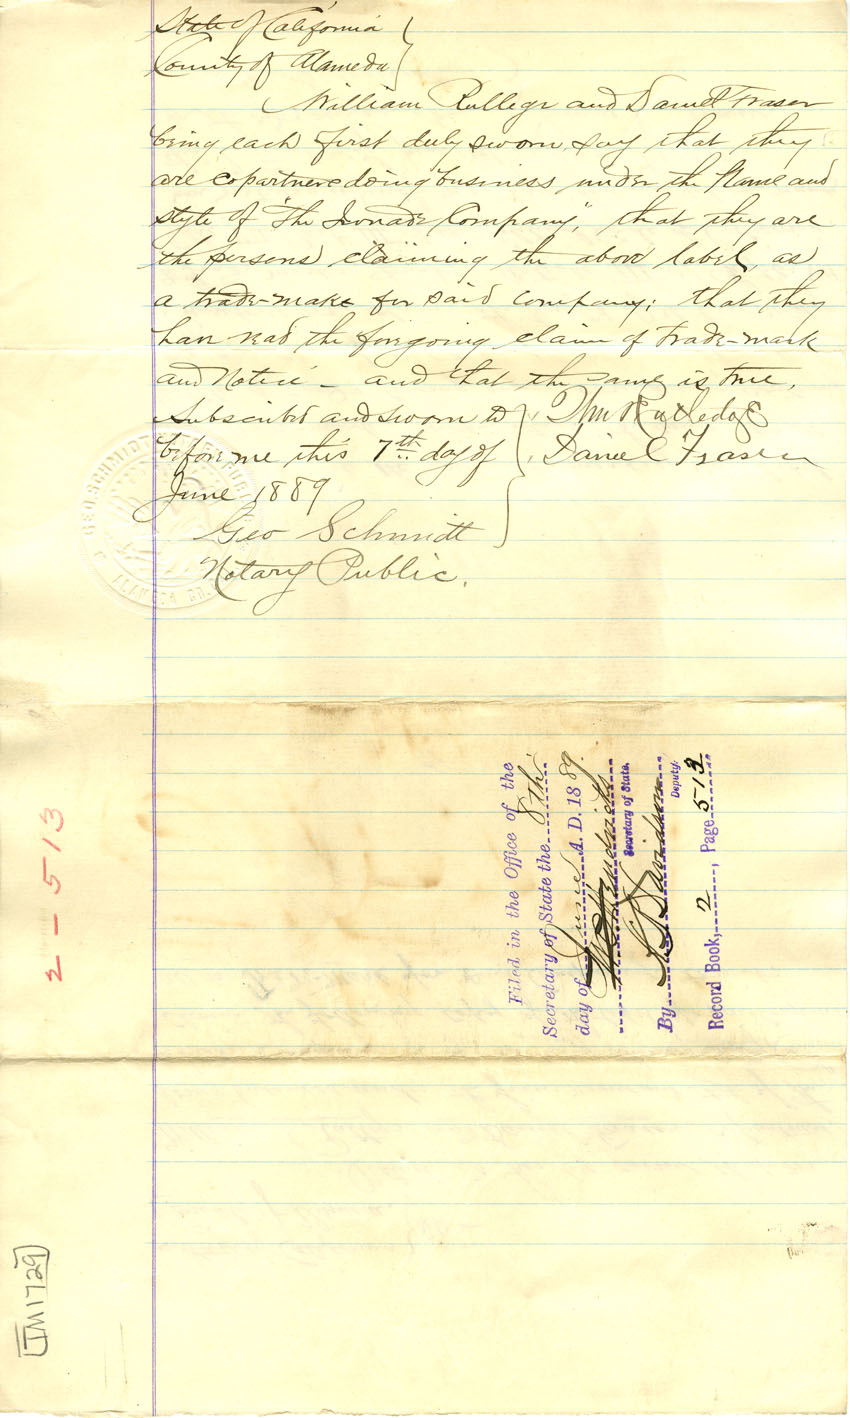 State of California
County of Alameda
William Rutledge and Daniel Fraser
being each first duly sworn, say that they
are copartners doing business under the Name and
style of "The Ironade Company", that they are
the persons claiming the above label, as
a trade-mark for said company; that they
have read the foregoing claim of trade-mark
and Notice - and that the same is true.
Subscribed and sworn to
before me this 7th day of
June 1889
Wm Rutledge
Daniel Fraser
Geo Schmidt
Notary Public.
GEO. SCHMIDT
ALAMEDA CO.
Filed in the Office of the
Secretary of State the 8th
day of June A. D. 1889.
W C Hendricks
Secretary of State.
By Davidson
Deputy.
Record Book, 2, Page 513
2-513
TM1729